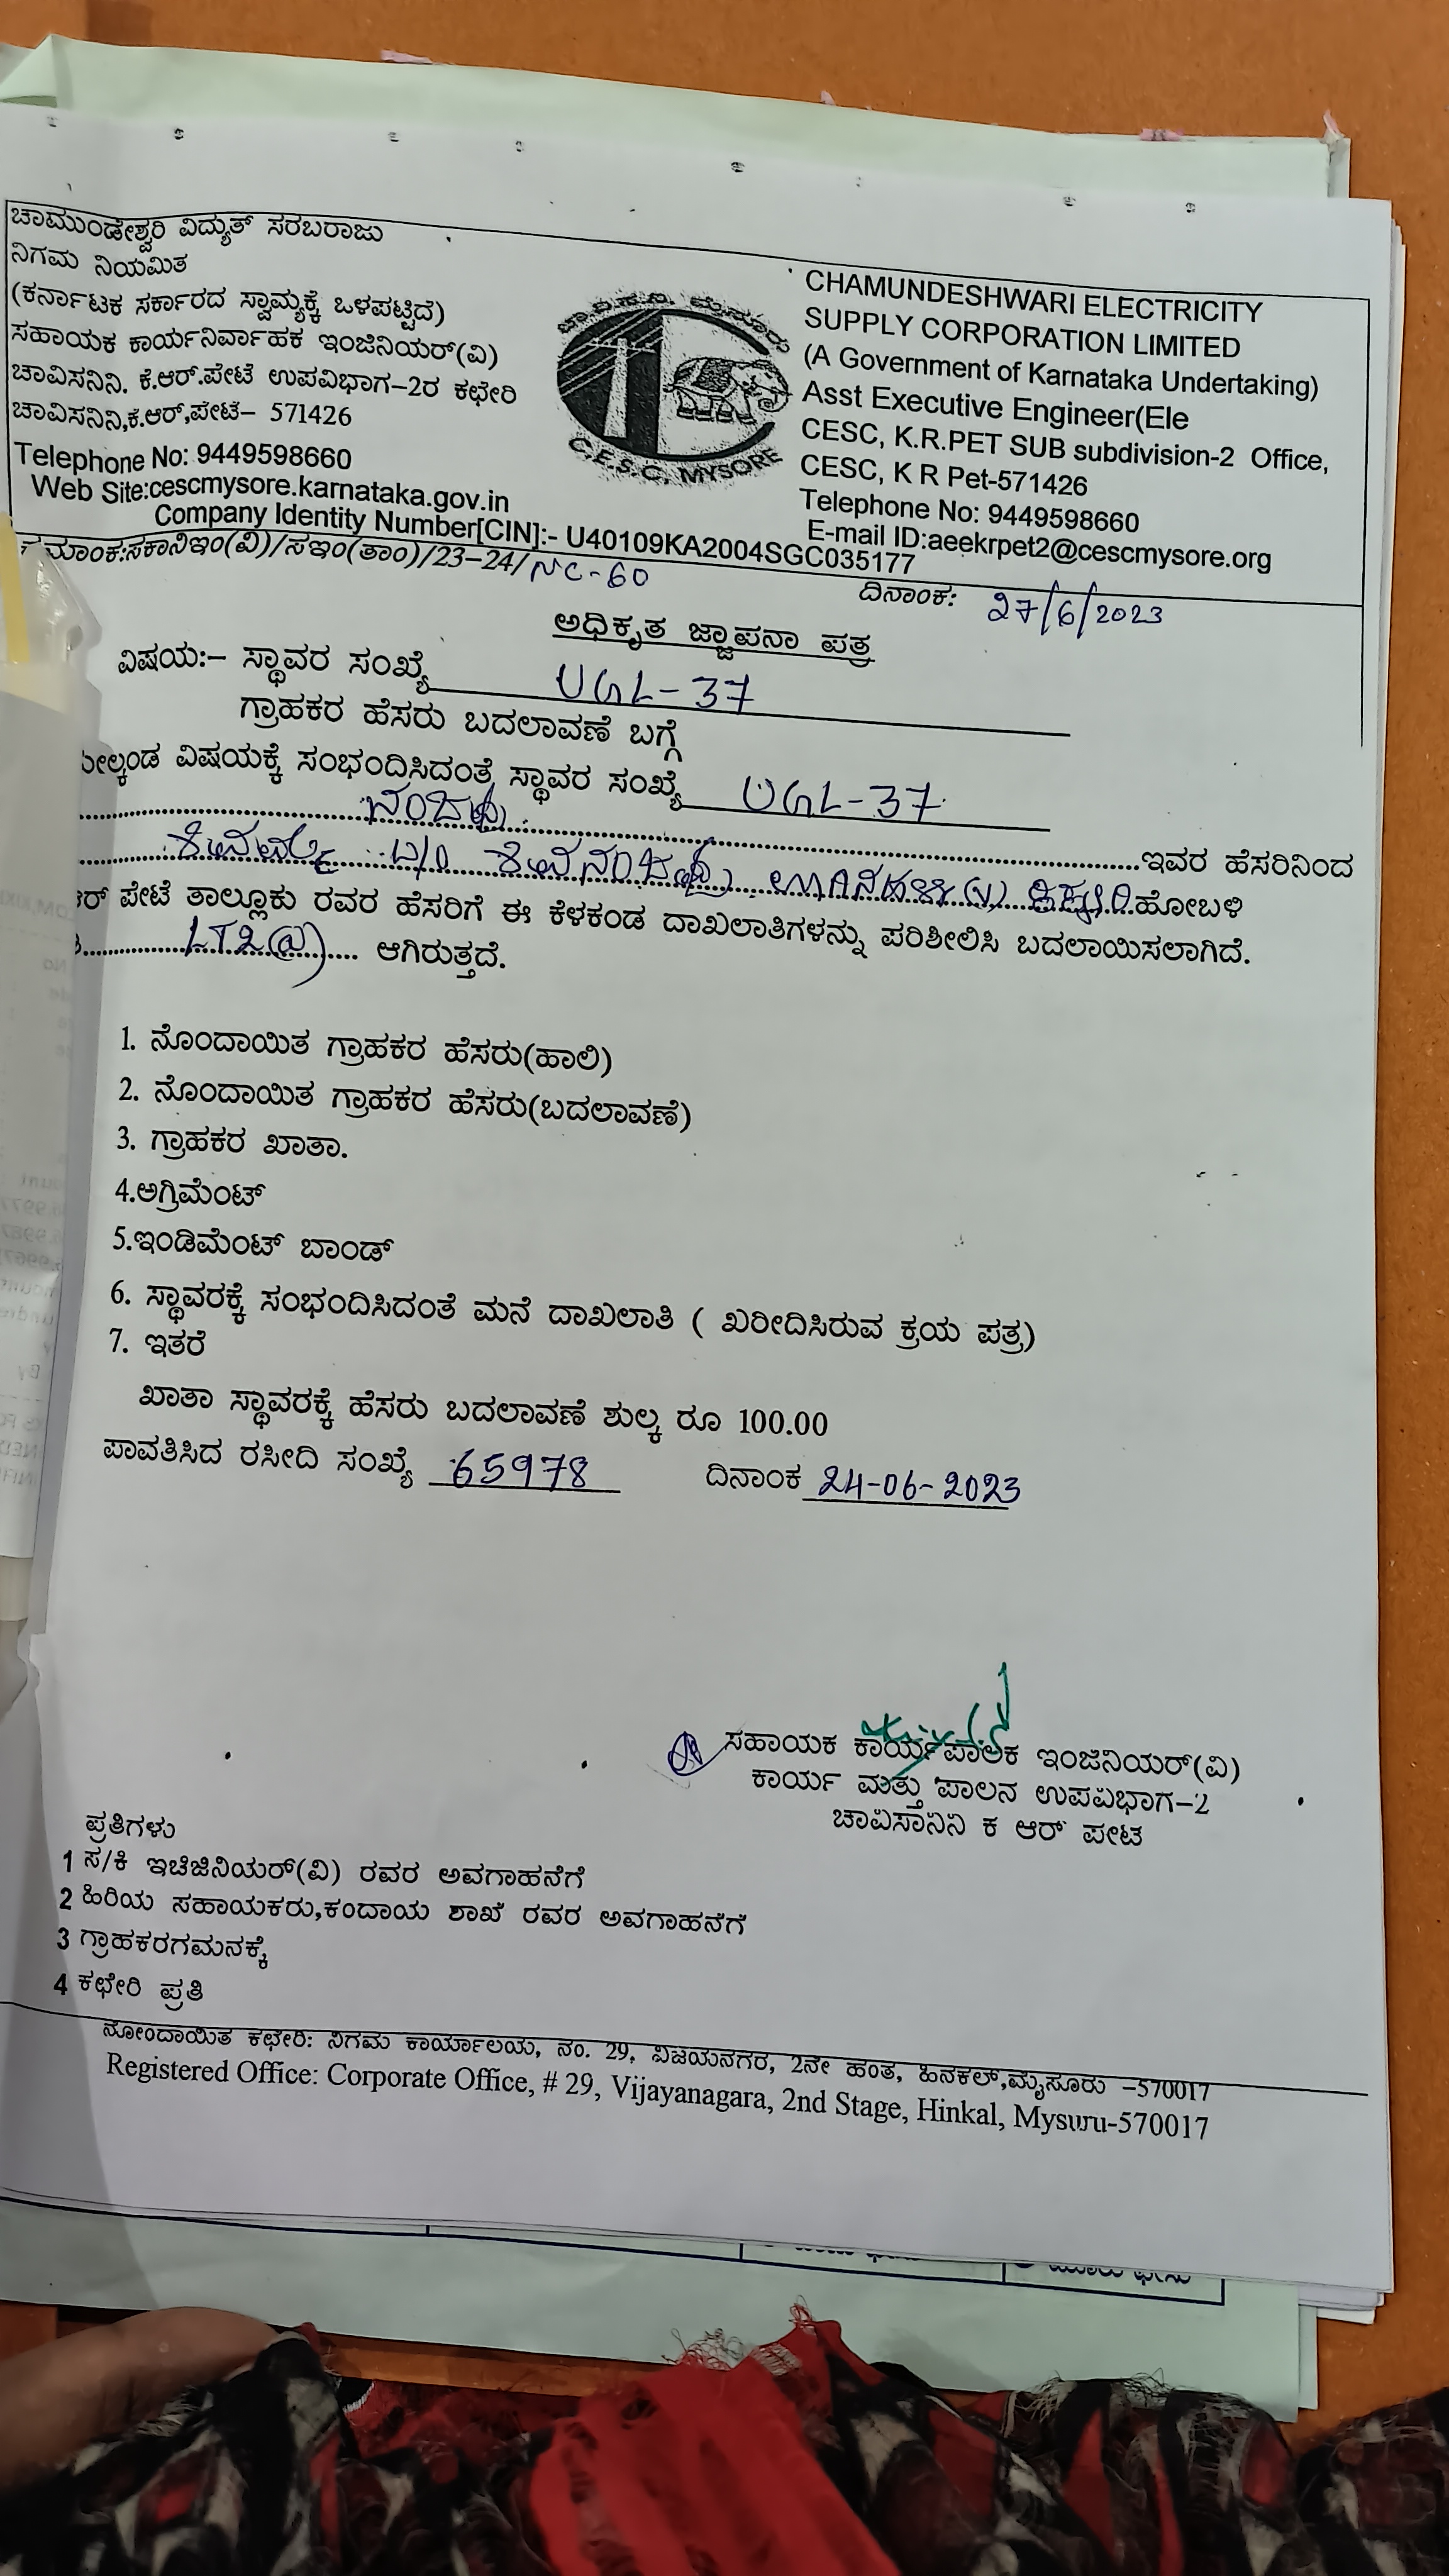 ಚಾಮುಂಡೇಶ್ವರಿ ವಿದ್ಯುತ್ ಸರಬರಾಜು
ನಿಗಮ ನಿಯಮಿತ
(ಕರ್ನಾಟಕ ಸರ್ಕಾರದ ಸ್ವಾಮ್ಯಕ್ಕೆ ಒಳಪಟ್ಟಿದೆ)
ಸಹಾಯಕ ಕಾರ್ಯನಿರ್ವಾಹಕ ಇಂಜಿನಿಯರ್(ವಿ)
ಚಾವಿಸನಿನಿ. ಕೆ.ಆರ್.ಪೇಟೆ ಉಪವಿಭಾಗ-2ರ ಕಛೇರಿ
ಚಾವಿಸನಿನಿ,ಕೆ.ಆರ್,ಪೇಟೆ- 571426
Telephone No: 9449598660
Web Site:cescmysore.karnataka.gov.in
C.E.S.C. MYSORE
CHAMUNDESHWARI ELECTRICITY
SUPPLY CORPORATION LIMITED
(A Government of Karnataka Undertaking)
Asst Executive Engineer(Ele
CESC, K.R.PET SUB subdivision-2 Office,
CESC, K R Pet-571426
Telephone No: 9449598660
E-mail ID:aeekrpet2@cescmysore.org
Company Identity Number[CIN]:- U40109KA2004SGC035177
ಕ್ರಮಾಂಕ:ಸಕಾನಿಇಂ(ವಿ)/ಸಇಂ(ತಾಂ)/23-24/NC-60
ದಿನಾಂಕ: 27/6/2023
ಅಧಿಕೃತ ಜ್ಞಾಪನಾ ಪತ್ರ
ವಿಷಯ:- ಸ್ಥಾವರ ಸಂಖ್ಯೆ UGL-37
ಗ್ರಾಹಕರ ಹೆಸರು ಬದಲಾವಣೆ ಬಗ್ಗೆ
ಮೇಲ್ಕಂಡ ವಿಷಯಕ್ಕೆ ಸಂಭಂದಿಸಿದಂತೆ ಸ್ಥಾವರ ಸಂಖ್ಯೆ UGL-37
ಇವರ ಹೆಸರಿನಿಂದ
ಹೋಬಳಿ
ಆರ್ ಪೇಟೆ ತಾಲ್ಲೂಕು ರವರ ಹೆಸರಿಗೆ ಈ ಕೆಳಕಂಡ ದಾಖಲಾತಿಗಳನ್ನು ಪರಿಶೀಲಿಸಿ ಬದಲಾಯಿಸಲಾಗಿದೆ.
LT2(a) ಆಗಿರುತ್ತದೆ.
1. ನೊಂದಾಯಿತ ಗ್ರಾಹಕರ ಹೆಸರು(ಹಾಲಿ)
2. ನೊಂದಾಯಿತ ಗ್ರಾಹಕರ ಹೆಸರು(ಬದಲಾವಣೆ)
3. ಗ್ರಾಹಕರ ಖಾತಾ.
4.ಅಗ್ರಿಮೆಂಟ್
5.ಇಂಡಿಮೆಂಟ್ ಬಾಂಡ್
6. ಸ್ಥಾವರಕ್ಕೆ ಸಂಭಂದಿಸಿದಂತೆ ಮನೆ ದಾಖಲಾತಿ ( ಖರೀದಿಸಿರುವ ಕ್ರಯ ಪತ್ರ)
7. ಇತರೆ
ಖಾತಾ ಸ್ಥಾವರಕ್ಕೆ ಹೆಸರು ಬದಲಾವಣೆ ಶುಲ್ಕ ರೂ 100.00
ಪಾವತಿಸಿದ ರಸೀದಿ ಸಂಖ್ಯೆ 65978 ದಿನಾಂಕ 24-06-2023
ಸಹಾಯಕ ಕಾರ್ಯಪಾಲಕ ಇಂಜಿನಿಯರ್(ವಿ)
ಕಾರ್ಯ ಮತ್ತು ಪಾಲನ ಉಪವಿಭಾಗ-2
ಚಾವಿಸಾನಿನಿ ಕೆ ಆರ್ ಪೇಟೆ
ಪ್ರತಿಗಳು
1 ಸ/ಕಿ ಇಚಿಜಿನಿಯರ್(ವಿ) ರವರ ಅವಗಾಹನೆಗೆ
2 ಹಿರಿಯ ಸಹಾಯಕರು,ಕಂದಾಯ ಶಾಖೆ ರವರ ಅವಗಾಹನೆಗೆ
3 ಗ್ರಾಹಕರಗಮನಕ್ಕೆ
4 ಕಛೇರಿ ಪ್ರತಿ
ನೋಂದಾಯಿತ ಕಛೇರಿ: ನಿಗಮ ಕಾರ್ಯಾಲಯ, ನಂ. 29, ವಿಜಯನಗರ, 2ನೇ ಹಂತ, ಹಿನಕಲ್,ಮೈಸೂರು -570017
Registered Office: Corporate Office, # 29, Vijayanagara, 2nd Stage, Hinkal, Mysuru-570017